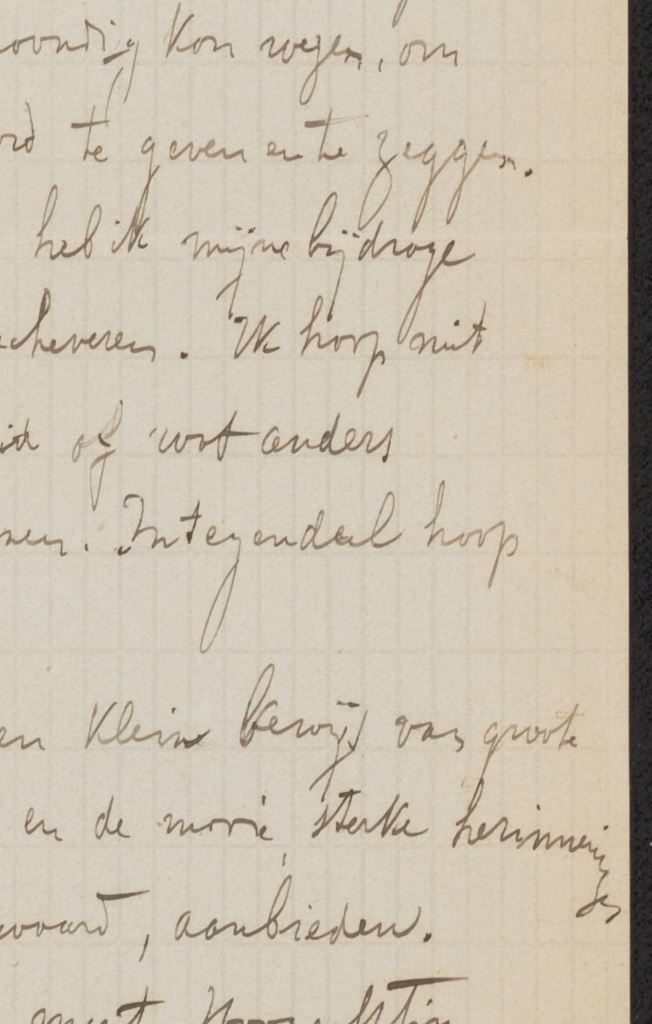 kon wegen, om
te geven en te zeggen.
heb ik mijne bijdroge
Ik hoop niet
of wat anders
Integendeel hoop
en klein bewijs van groote
en de mooie, sterke herinneringen
aanbieden.